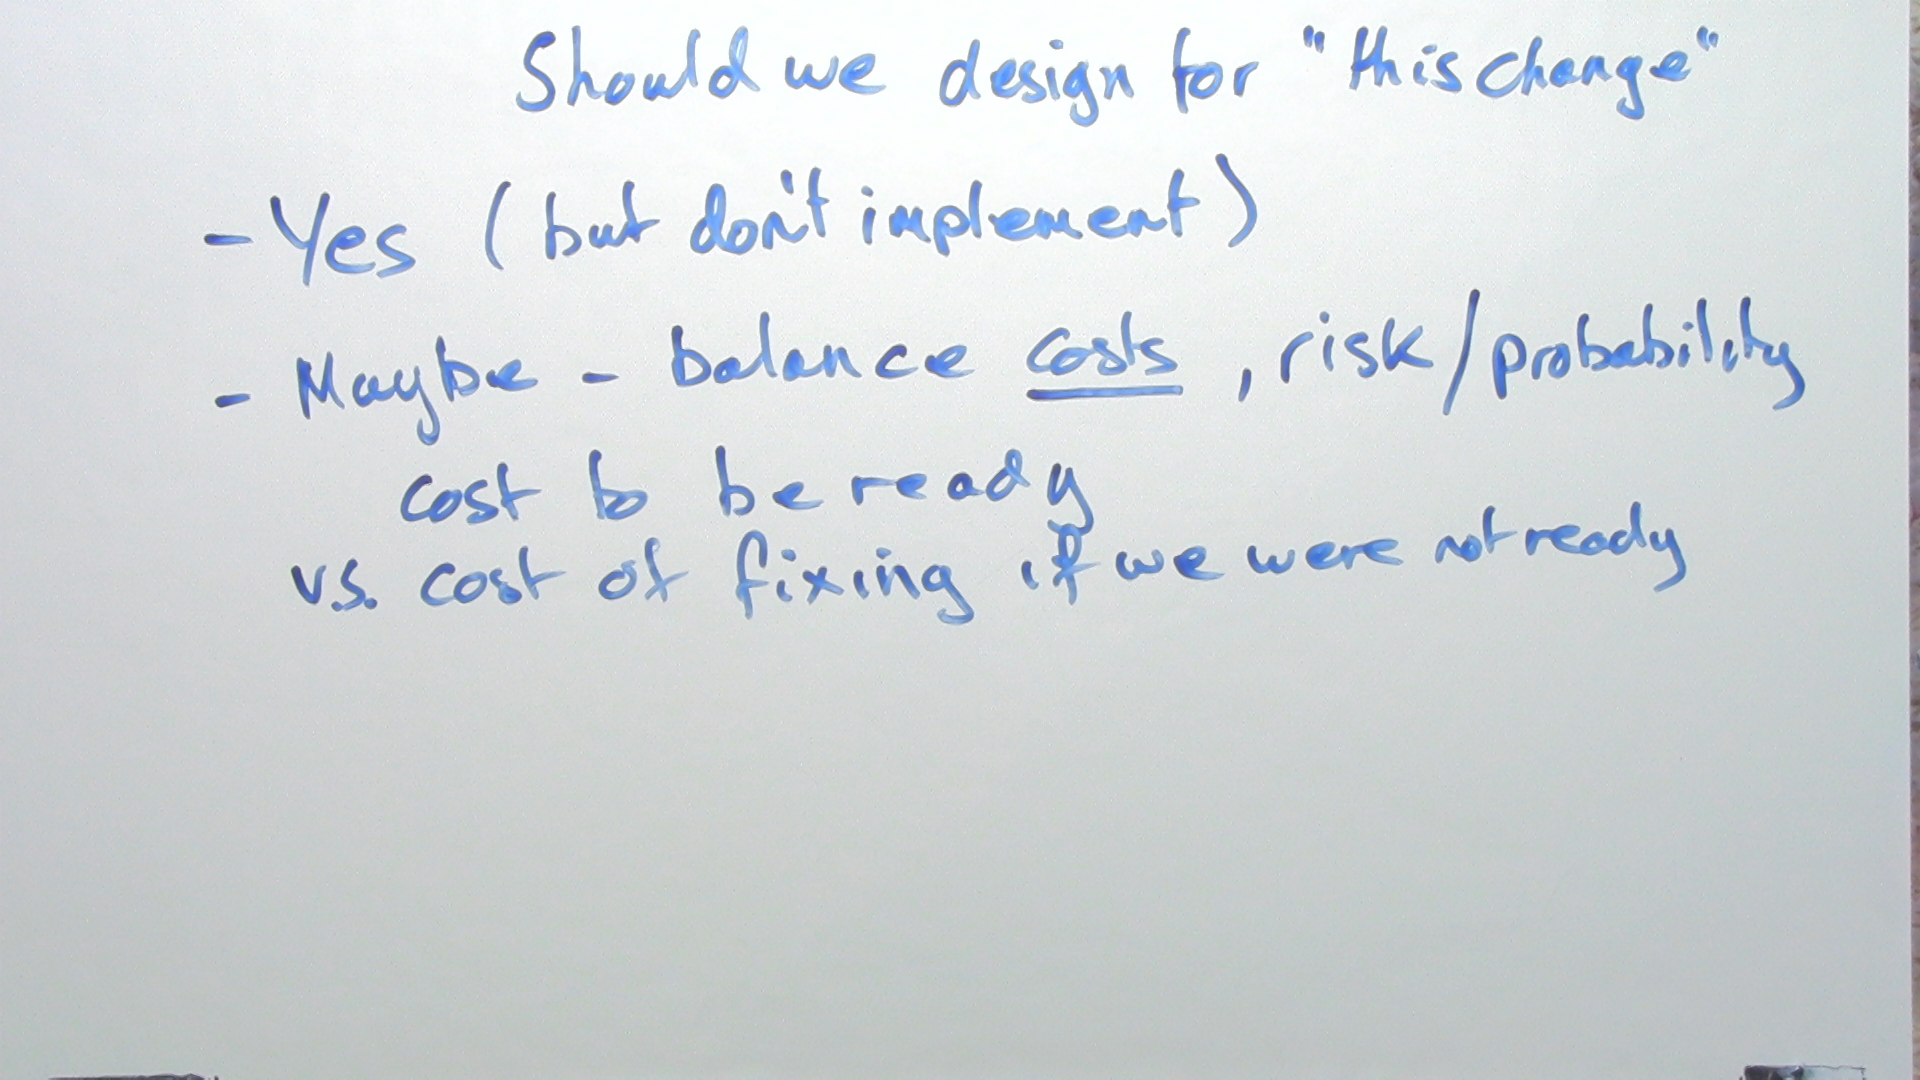 Should we design for "this change"
- Yes (but don't implement)
- Maybe - balance costs, risk/probability
cost to be ready
v.s. cost of fixing if we were not ready